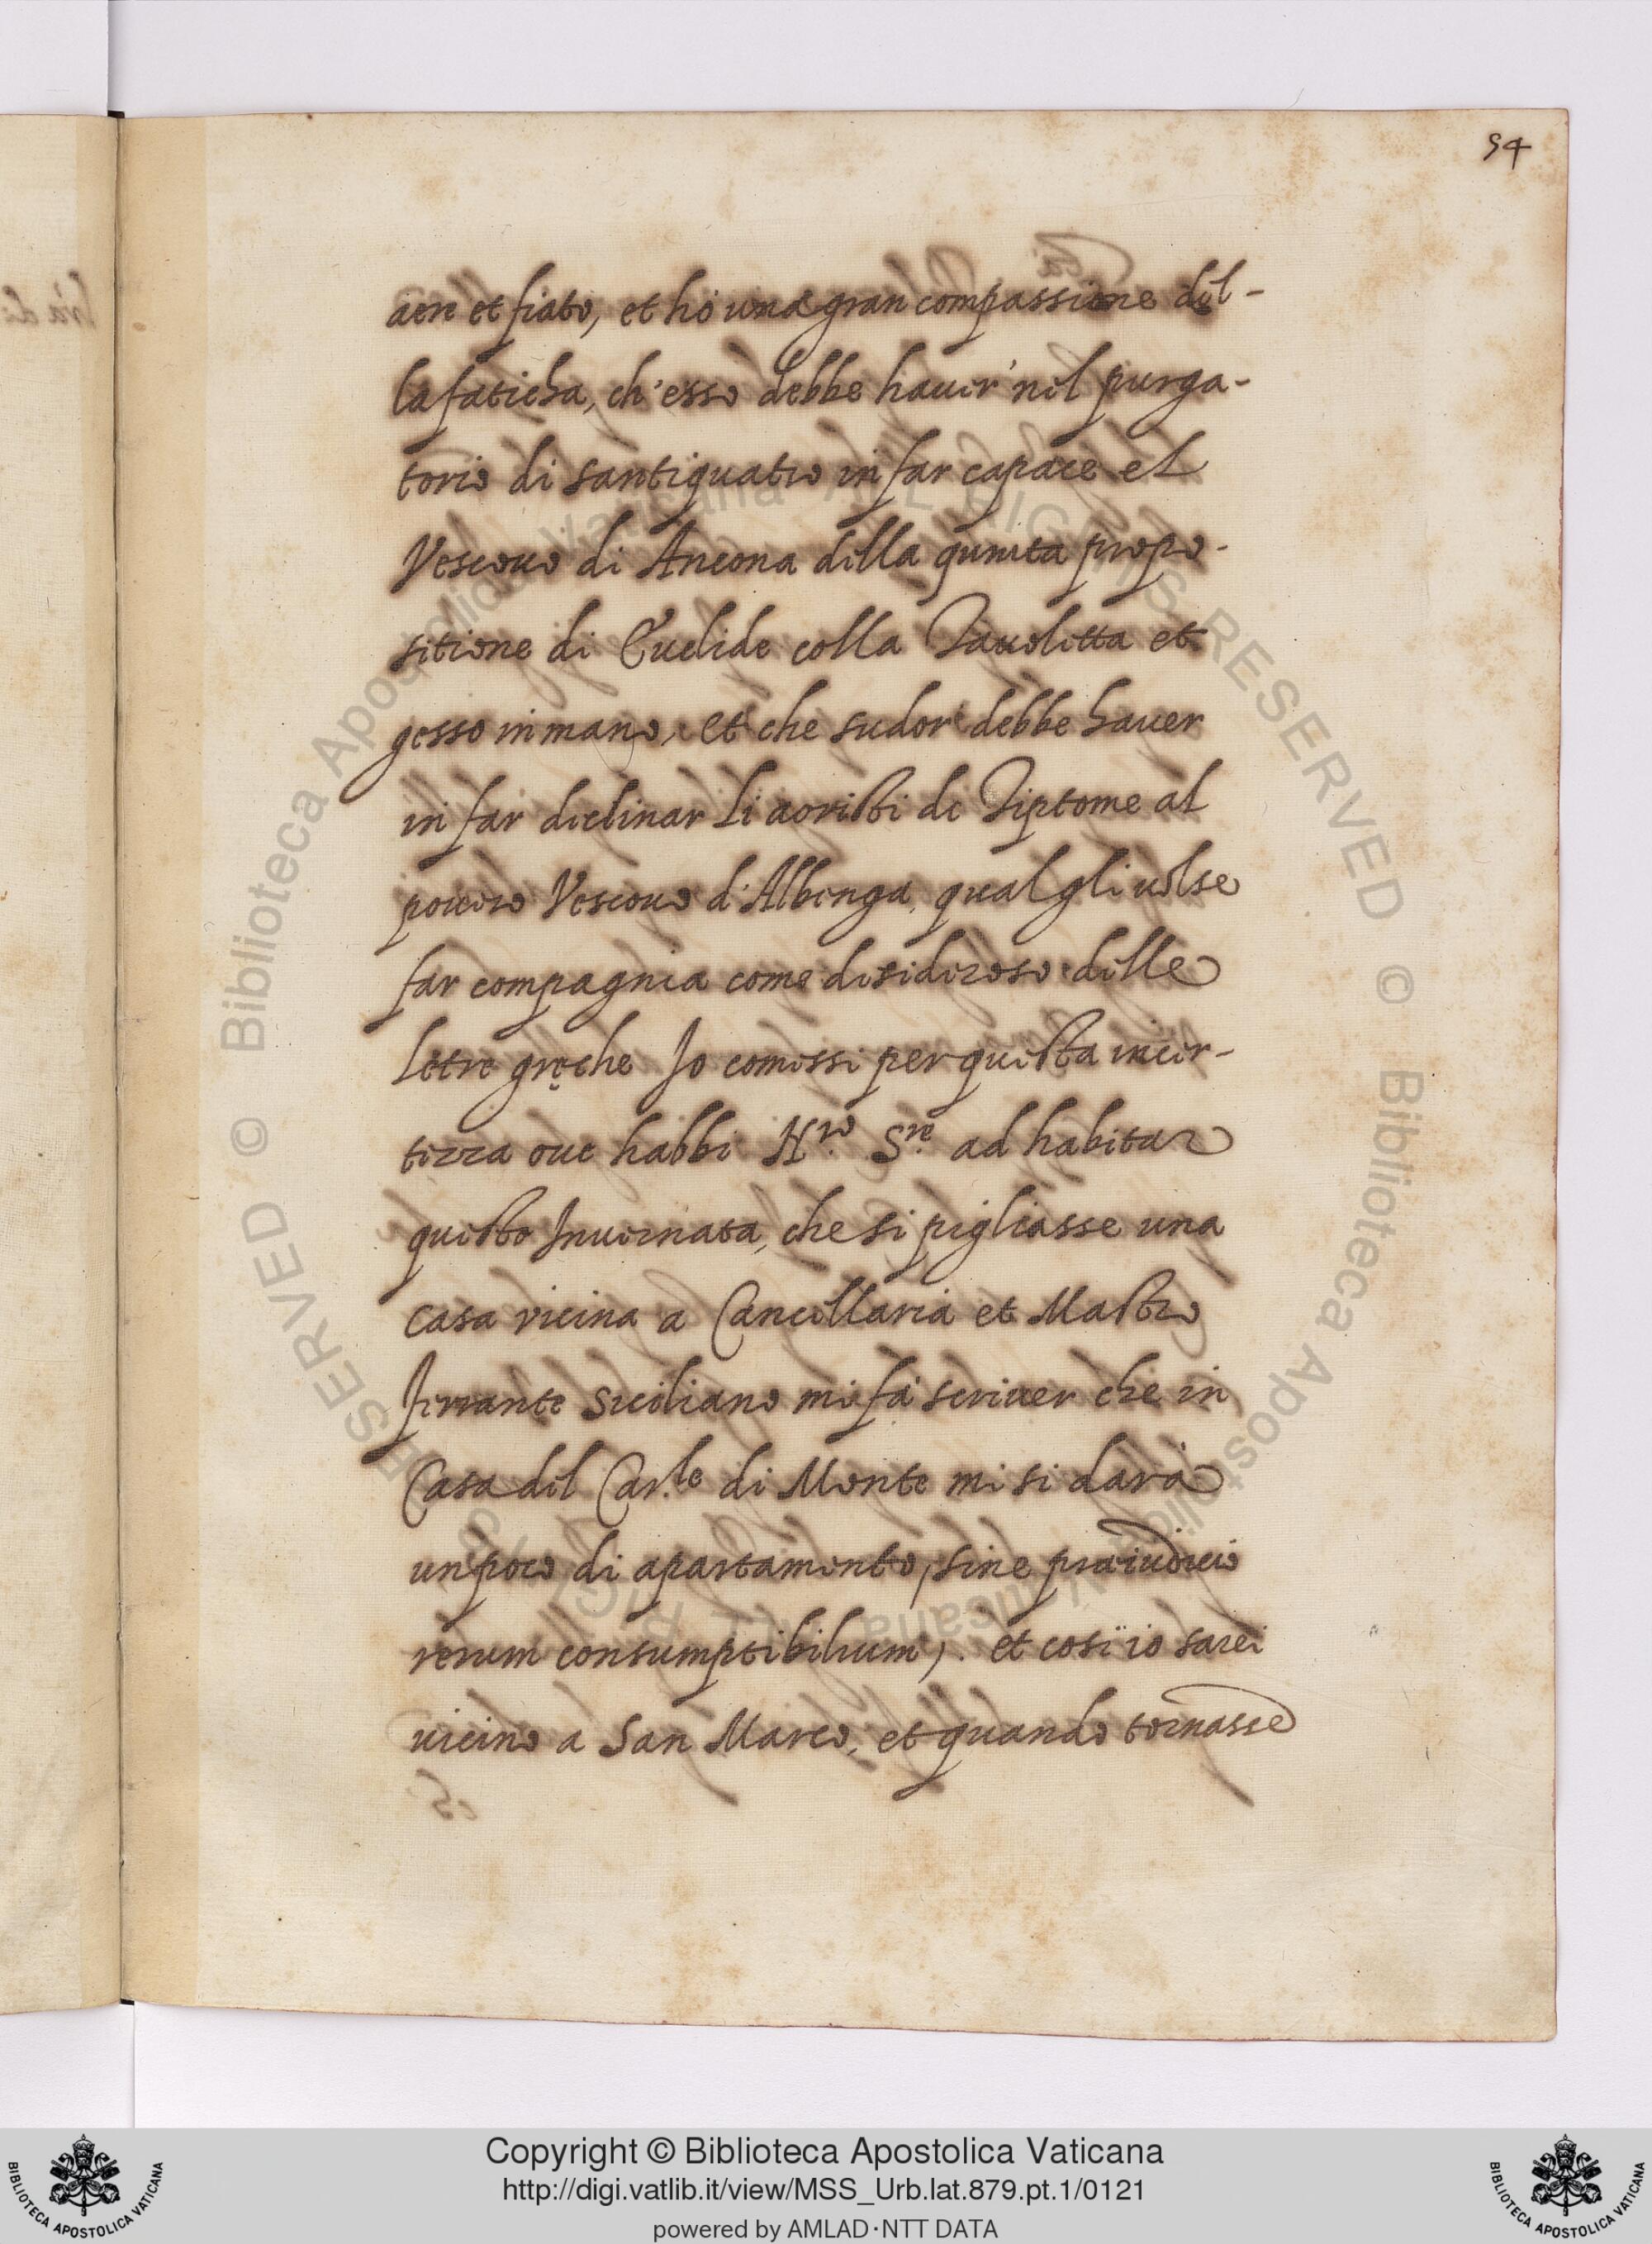 94
aere et fiato, et hò una gran compassione del-
la faticha, ch'esso debbe hauer' nel purga-
torio di santiquatro in far capace el
Vescouo di Ancona della quinta propo-
sitione di Euclide colla Tauoletta et
gesso in mano, et che sudor debbe hauer
in far declinar li aoristi de Tiptome al
pouero Vescouo d'Albenga, qual gli uolse
far compagnia come desideroso delle
letre greche Io comessi per questa incer-
tezza oue habbi N.ro S.re ad habitar
questo Inuernata, che si pigliasse una
casa vicina a Cancellaria et Mastro
Ferrante Siciliano mi fà scriuer che in
Casa del Car.le di Monte mi si darà
un poco di apartamento, sine praeiudicio
rerum consumptibilium, et cosi io sarei
uicino a San Marco, et quando tornasse
Copyright © Biblioteca Apostolica Vaticana
http://digi.vatlib.it/view/MSS_Urb.lat.879.pt.1/0121
powered by AMLAD·NTT DATA
BIBLIOTECA APOSTOLICA VATICANA
BIBLIOTECA APOSTOLICA VATICANA